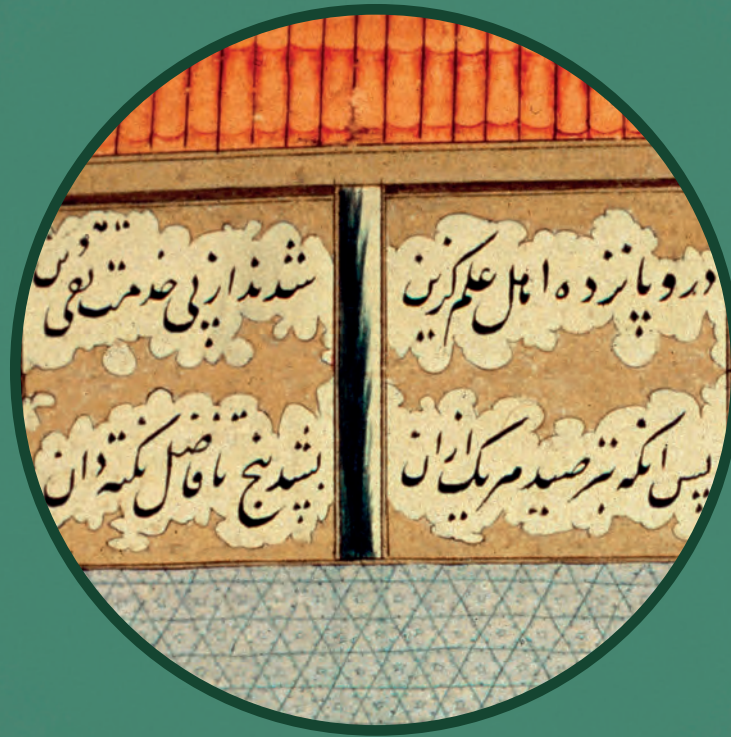 درو پانزده اهل علم کزین شدند از پی خدمت تقی
پس انکه بترصید هر یک ازان بشد پنج تا فاضل نکته دان